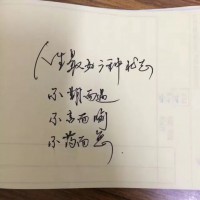 人生最好三种状态
不期而遇
不言而喻
不药而愈